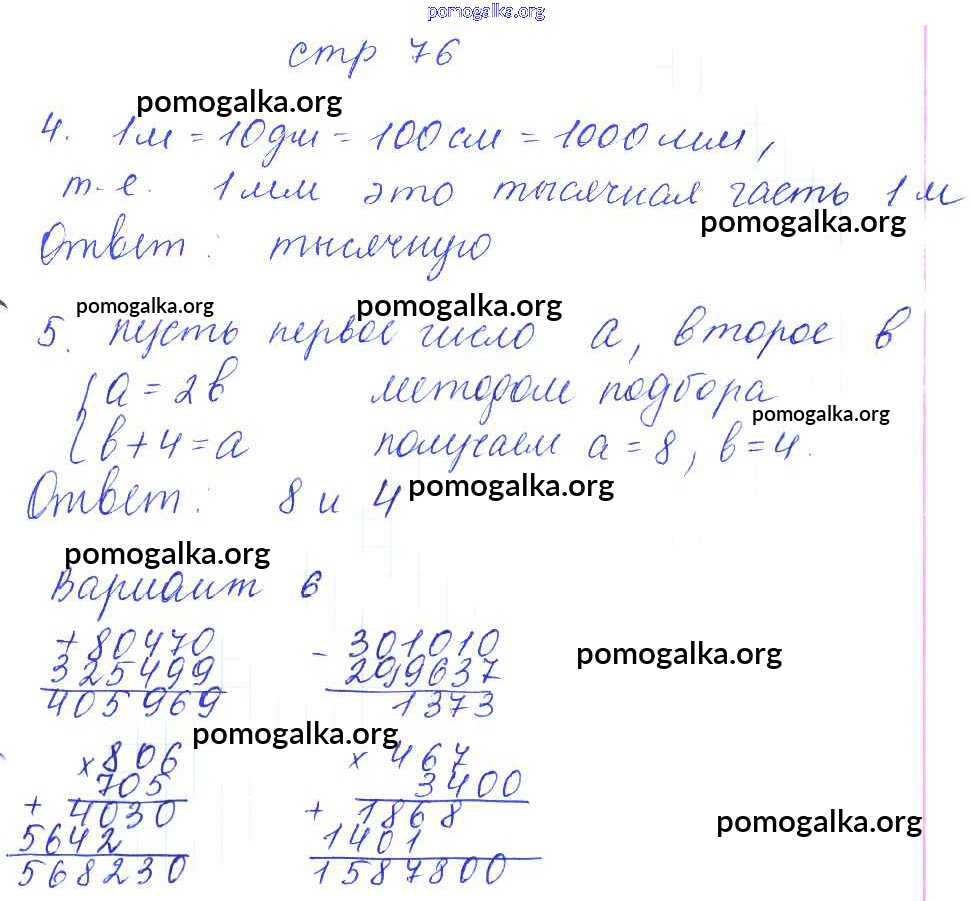 pomogalka.org
стр 76
pomogalka.org
4. 1м = 10дм = 100см = 1000мм,
т.е. 1мм это тысячная часть 1м
pomogalka.org
Ответ: тысячную
pomogalka.org pomogalka.org
5. пусть первое число a, второе в
{ a = 2в методом подбора
pomogalka.org
в + 4 = a получаем a = 8, в = 4.
Ответ: 8 и 4
pomogalka.org
pomogalka.org
Вариант 6
+ 80470 - 301010
325499 299637
pomogalka.org
405969 1373
pomogalka.org
x 806 x 467
705 3400
+ 4030 + 1868
5642 1401
pomogalka.org
568230 1587800